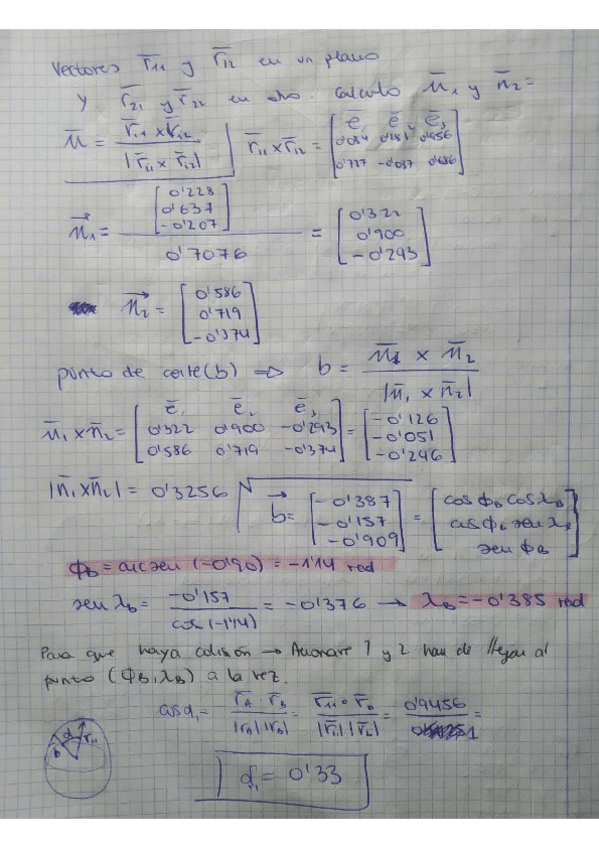 Vectores r̄11 y r̄12 en un plano
y r̄21 y r̄22 en otro. calculo n̄1 y n̄2 =
n̄ = r̄11 x r̄12 / |r̄11 x r̄12|   r̄11 x r̄12 = [ē1 ē2 ē3
0'727 -0'037 0'686]
n⃗1 = [0'228 0'637 -0'207] / 0'7076 = [0'322 0'900 -0'293]
n⃗2 = [0'586 0'719 -0'374]
punto de corte (b) ⇒ b = n̄1 x n̄2 / |n̄1 x n̄2|
n̄1 x n̄2 = [ē1 ē2 ē3
0'322 0'900 -0'293
0'586 0'719 -0'374] = [-0'126 -0'051 -0'246]
|n̄1 x n̄2| = 0'3256   b⃗ = [-0'387 -0'157 -0'909] = [cos ϕB cos λB
cos ϕB sen λB
sen ϕB]
ϕB = arcsen (-0'90) = -1'14 rad
sen λB = -0'157 / cos(-1'14) = -0'376 → λB = -0'385 rad
Para que haya colisión → Aeronave 1 y 2 han de llegar al
punto (ϕB, λB) a la vez.
cos α1 = r̄A · r̄B / |r̄A| |r̄B| = r̄11 · r̄B / |r̄11| |r̄B| = 0'9456 / 1 =
b α r̄11
α1 = 0'33